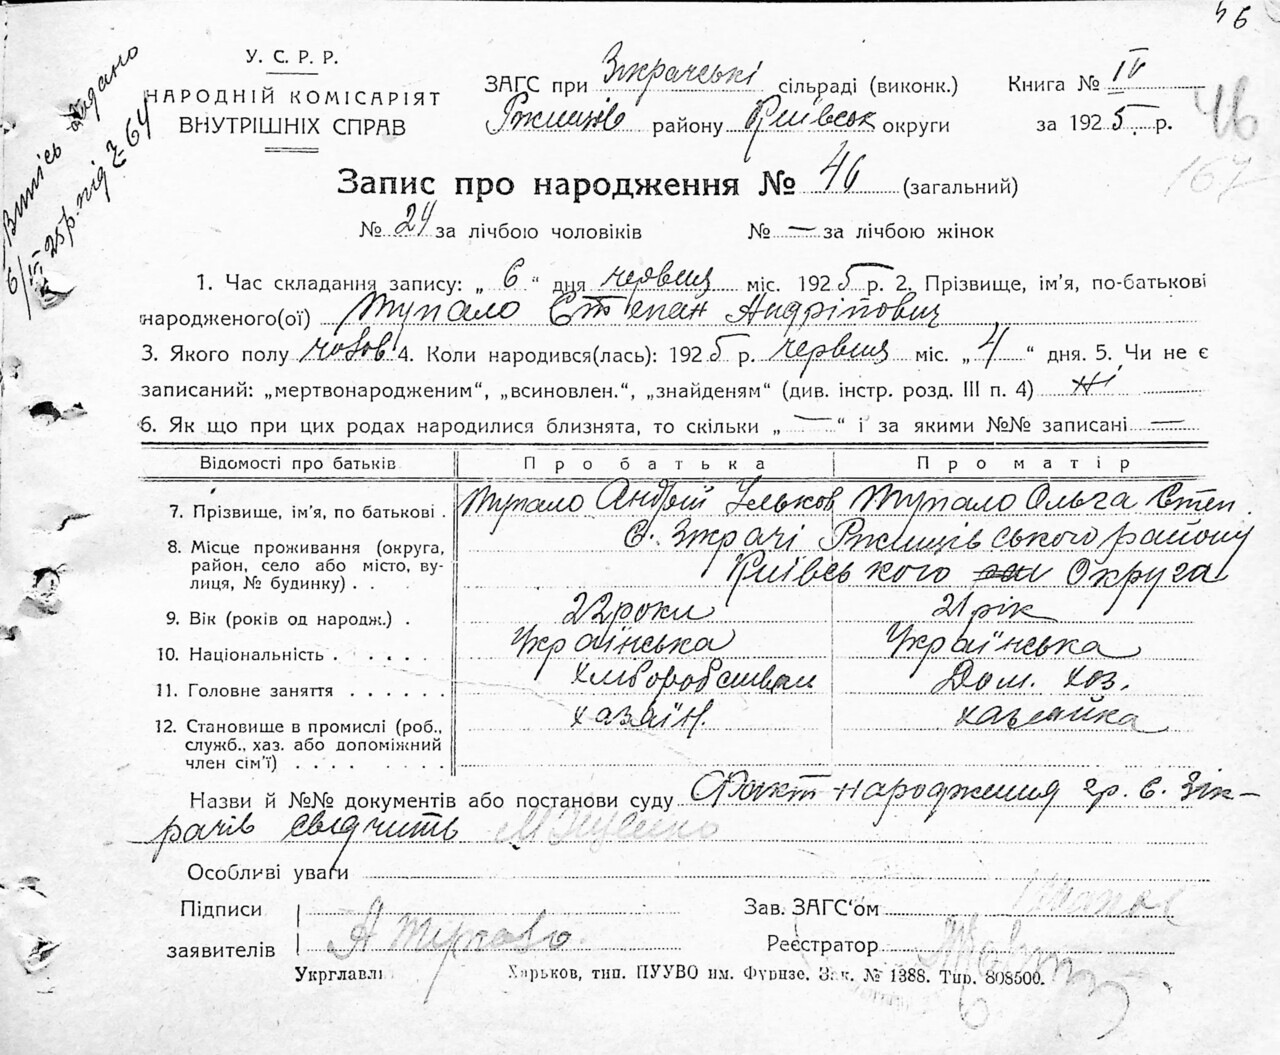 46
У. С. Р. Р.
НАРОДНІЙ КОМІСАРІЯТ
ВНУТРІШНІХ СПРАВ
Випісь видано
6/VI 25р. під № 64
ЗАГС при Зікрачські сільраді (виконк.)
Ржищів району Київськ округи
Книга № IV
за 1925 р.
46
167
Запис про народження № 46 (загальний)
№ 24 за лічбою чоловіків № — за лічбою жінок
1. Час складання запису: „ 6 “ дня червня міс. 1925 р. 2. Прізвище, ім'я, по-батькові
народженого(ої) Тупало Степан Андрійович
3. Якого полу чолов. 4. Коли народився(лась): 1925 р. червня міс. „ 4 “ дня. 5. Чи не є
записаний: „мертвонародженим“, „всиновлен.“, „знайденям“ (див. інстр. розд. III п. 4) Ні
6. Як що при цих родах народилися близнята, то скільки „ — “ і за якими №№ записані —
Відомості про батьків Про батька Про матір
7. Прізвище, ім'я, по батькові . Тупало Андрій Ільков Тупало Ольга Степ.
8. Місце проживання (округа, район, село або місто, вулиця, № будинку) . . С. Зікрачі Ржищівського району
Київського Округа
9. Вік (років од народж.) . 22 роки 21 рік
10. Національність . . . . . Українська Українська
11. Головне заняття . . . . . . Дом. хоз.
12. Становище в промислі (роб., служб., хаз. або допоміжний член сім'ї) . . . . . . . . хазаїн. хазяйка
Назви й №№ документів або постанови суду Факт народження гр. с. Зік-
рачів свідчить
Особливі уваги
Підписи
заявителів А Тупало
Зав. ЗАГС'ом
Реєстратор
Укрглавлі Харьков, тип. ПУУВО им. Фрунзе. Зак. № 1388. Тир. 808500.